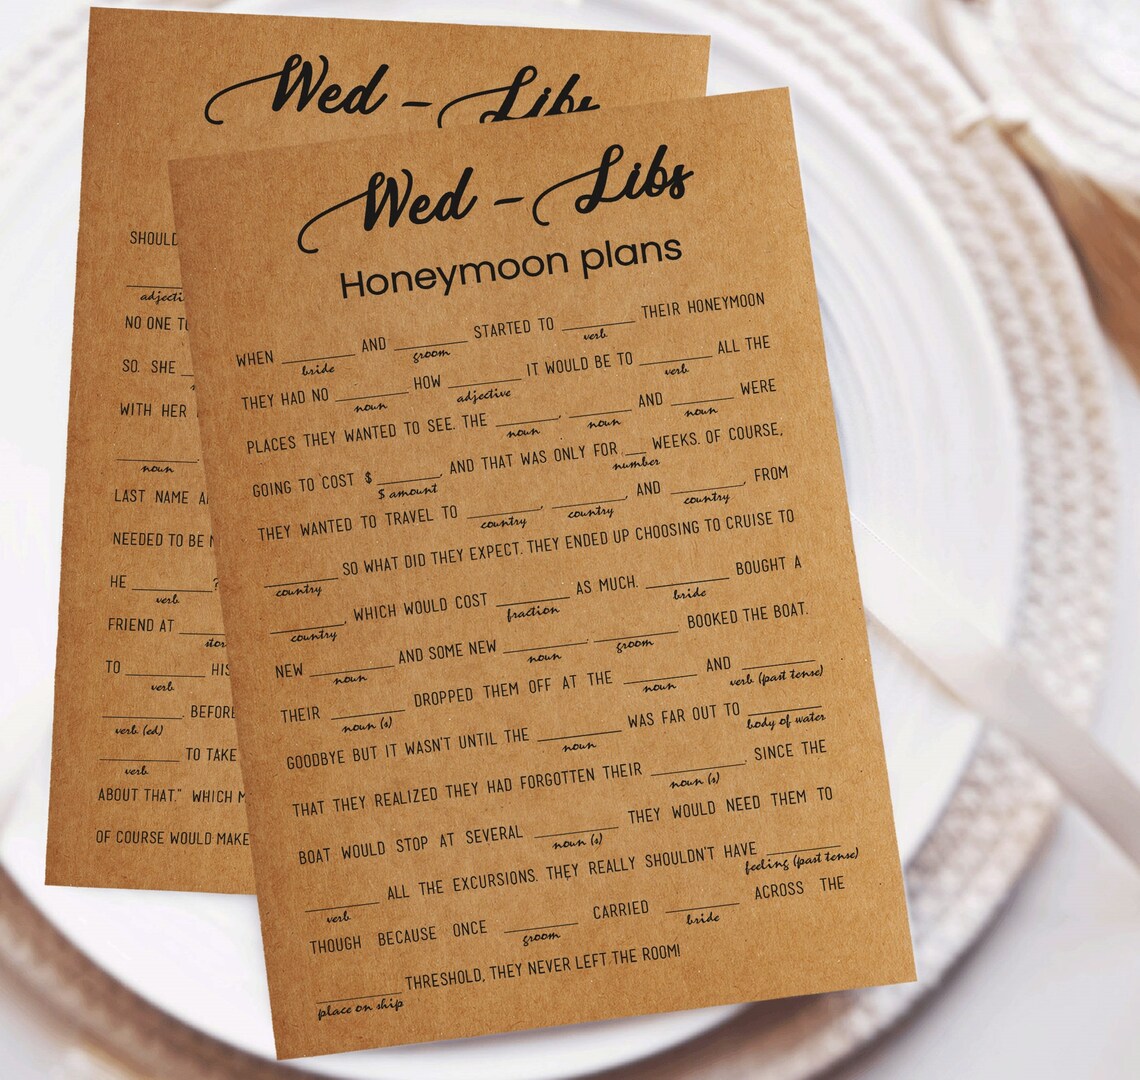 Wed - Libs
SHOULD
adjecti
NO ONE TO
SO. SHE ____
WITH HER
noun
LAST NAME A
NEEDED TO BE
HE ____?
verb
FRIEND AT ____
stor
TO ____ HIS
verb
____. BEFORE
verb (ed)
____ TO TAKE
verb
ABOUT THAT." WHICH M
OF COURSE WOULD MAKE
Wed - Libs
Honeymoon plans
WHEN ____ AND ____ STARTED TO ____ THEIR HONEYMOON
bride groom verb
THEY HAD NO ____ HOW ____ IT WOULD BE TO ____ ALL THE
noun adjective verb
PLACES THEY WANTED TO SEE. THE ____, ____ AND ____ WERE
noun noun noun
GOING TO COST $ ____, AND THAT WAS ONLY FOR __ WEEKS. OF COURSE,
$ amount number
THEY WANTED TO TRAVEL TO ____, ____, AND ____, FROM
country country country
____ SO WHAT DID THEY EXPECT. THEY ENDED UP CHOOSING TO CRUISE TO
country
____, WHICH WOULD COST ____ AS MUCH. ____ BOUGHT A
country fraction bride
NEW ____ AND SOME NEW ____. ____ BOOKED THE BOAT.
noun noun groom
THEIR ____ DROPPED THEM OFF AT THE ____ AND ____
noun (s) noun verb (past tense)
GOODBYE BUT IT WASN'T UNTIL THE ____ WAS FAR OUT TO ____
noun body of water
THAT THEY REALIZED THEY HAD FORGOTTEN THEIR ____. SINCE THE
noun (s)
BOAT WOULD STOP AT SEVERAL ____ THEY WOULD NEED THEM TO
noun (s)
____ ALL THE EXCURSIONS. THEY REALLY SHOULDN'T HAVE ____
verb feeling (past tense)
THOUGH BECAUSE ONCE ____ CARRIED ____ ACROSS THE
groom bride
____ THRESHOLD, THEY NEVER LEFT THE ROOM!
place on ship